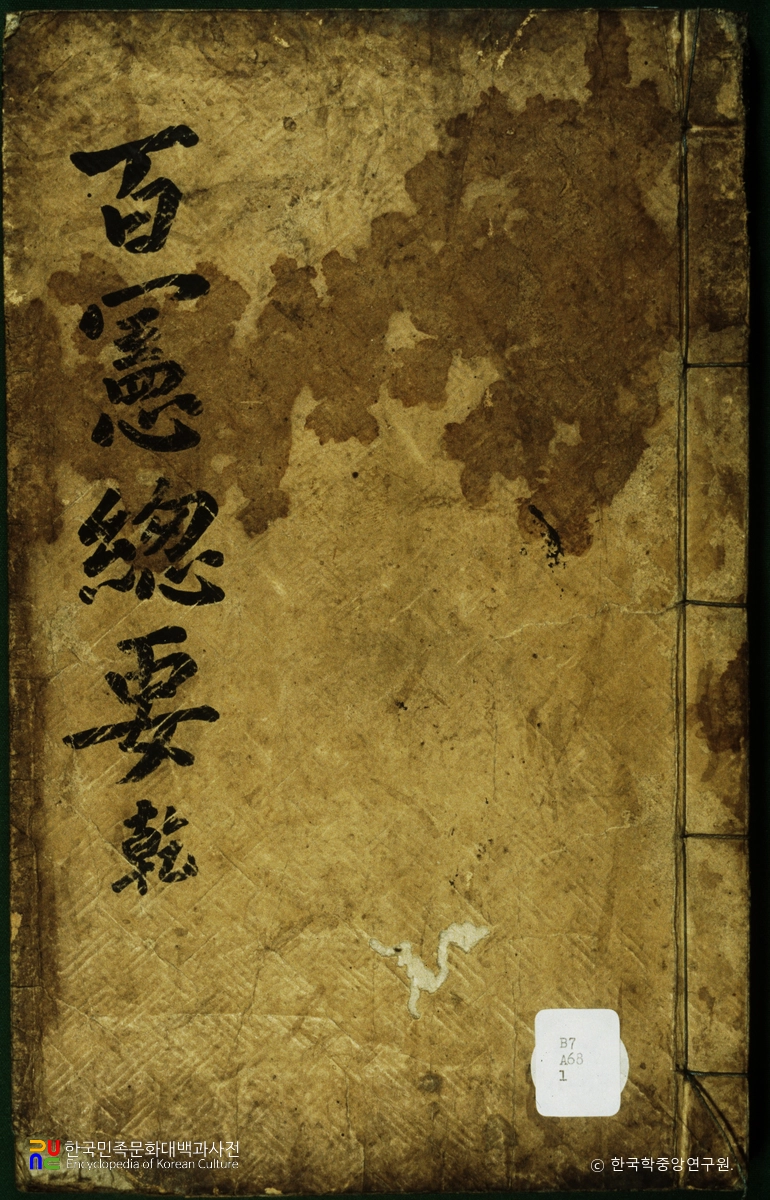 百憲緫要 乾
B7
A68
1
한국민족문화대백과사전
Encyclopedia of Korean Culture
© 한국학중앙연구원.